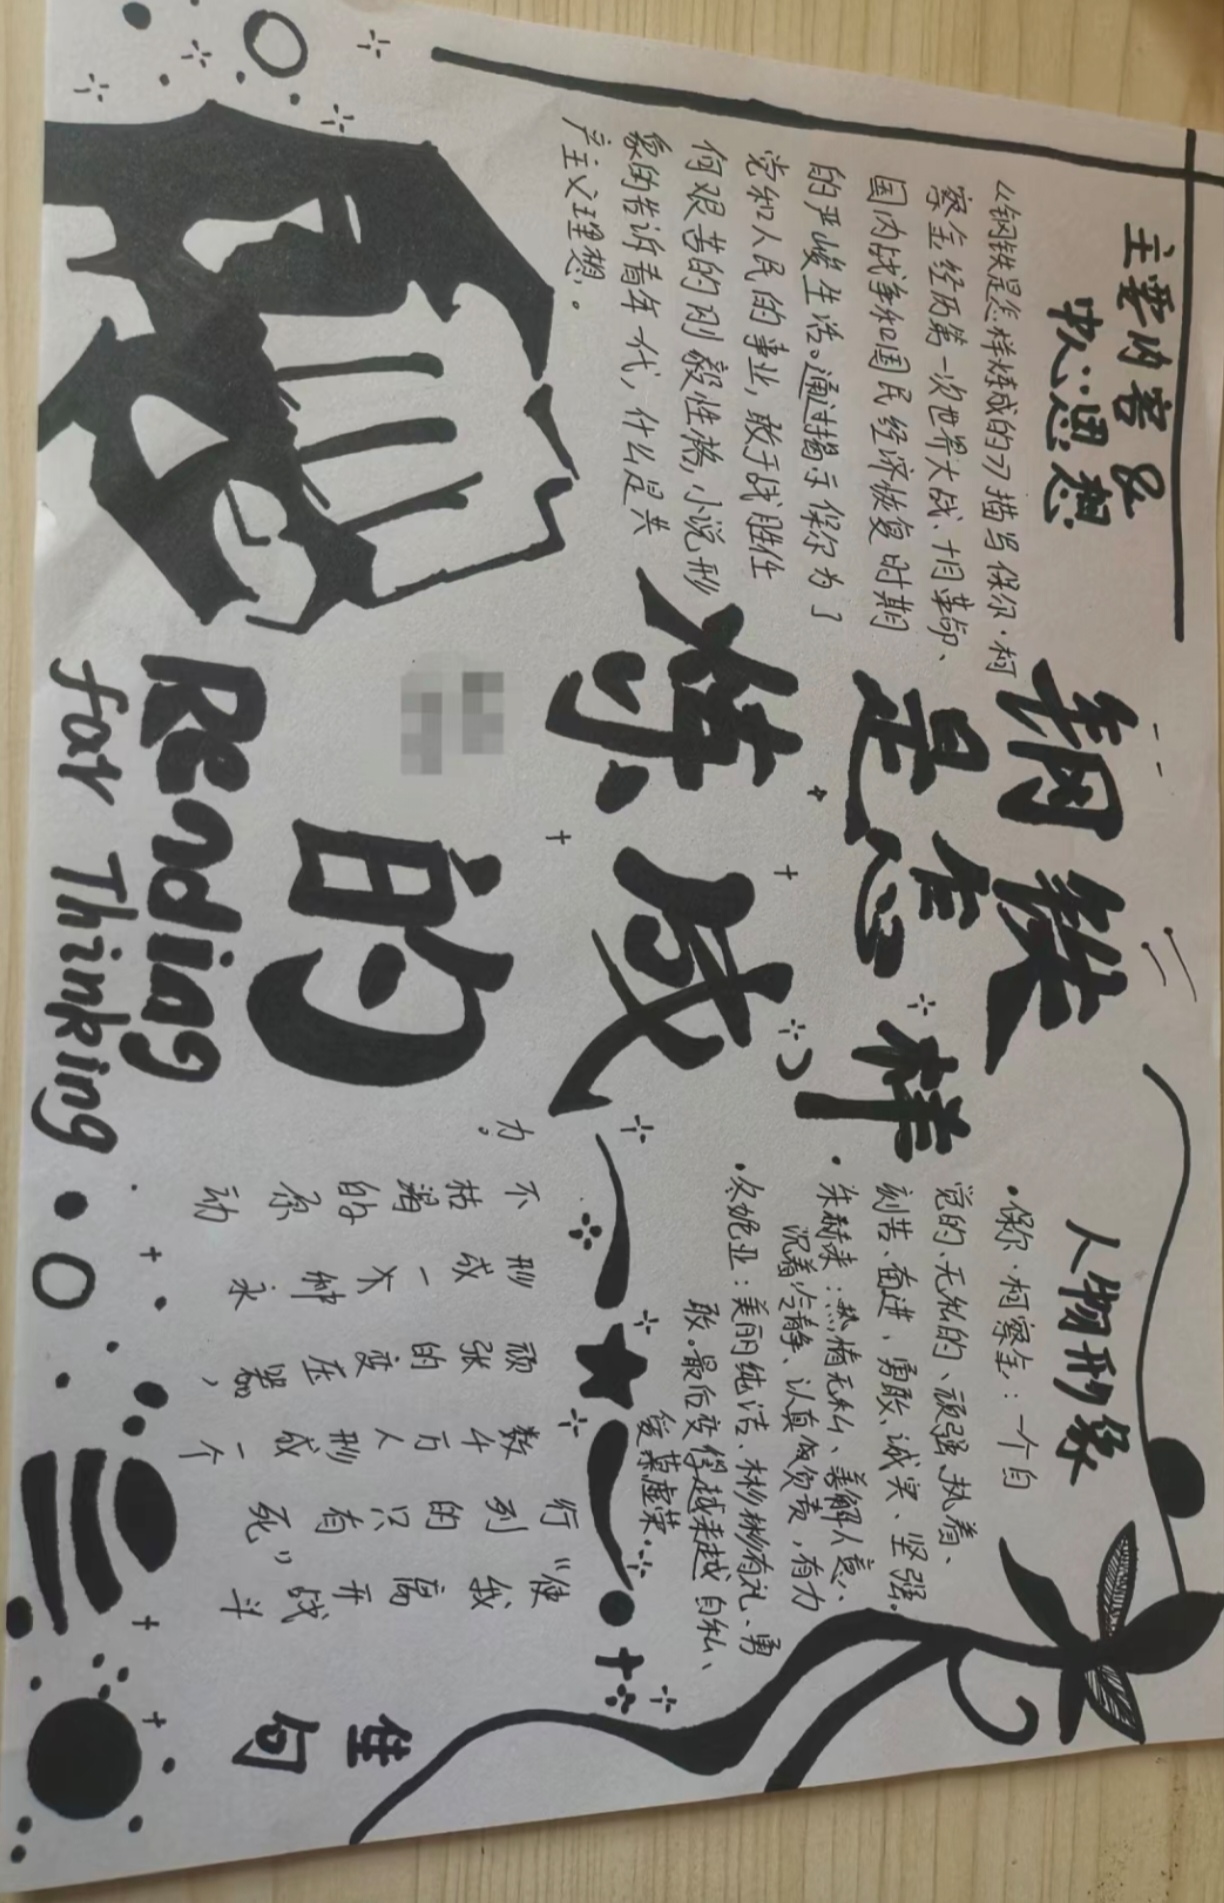 主要内容及
中心思想
《钢铁是怎样炼成的》描写保尔·柯
察金经历第一次世界大战、十月革命、
国内战争和国民经济恢复时期
的严峻生活。通过揭示保尔为了
党和人民的事业,敢于战胜任
何艰苦的刚毅性格,小说形
象的告诉青年一代,什么是共
产主义理想。
钢铁
是怎样
炼成
的
Reading
for Thinking
人物形象
·保尔·柯察金:一个自
觉的、无私的、顽强、执着、
刻苦、奋进、勇敢、诚实、坚强。
·朱赫来:热情无私、善解人意、
沉着冷静、认真负责,有力
·冬妮亚:美丽纯洁、彬彬有礼、勇
敢。最后变得越来越自私、
爱慕虚荣...
佳句
“使我离开战斗
行列的只有死”
数千万人形成一个
顽张的变压器,
形成一大种永
不枯竭的原动
力。